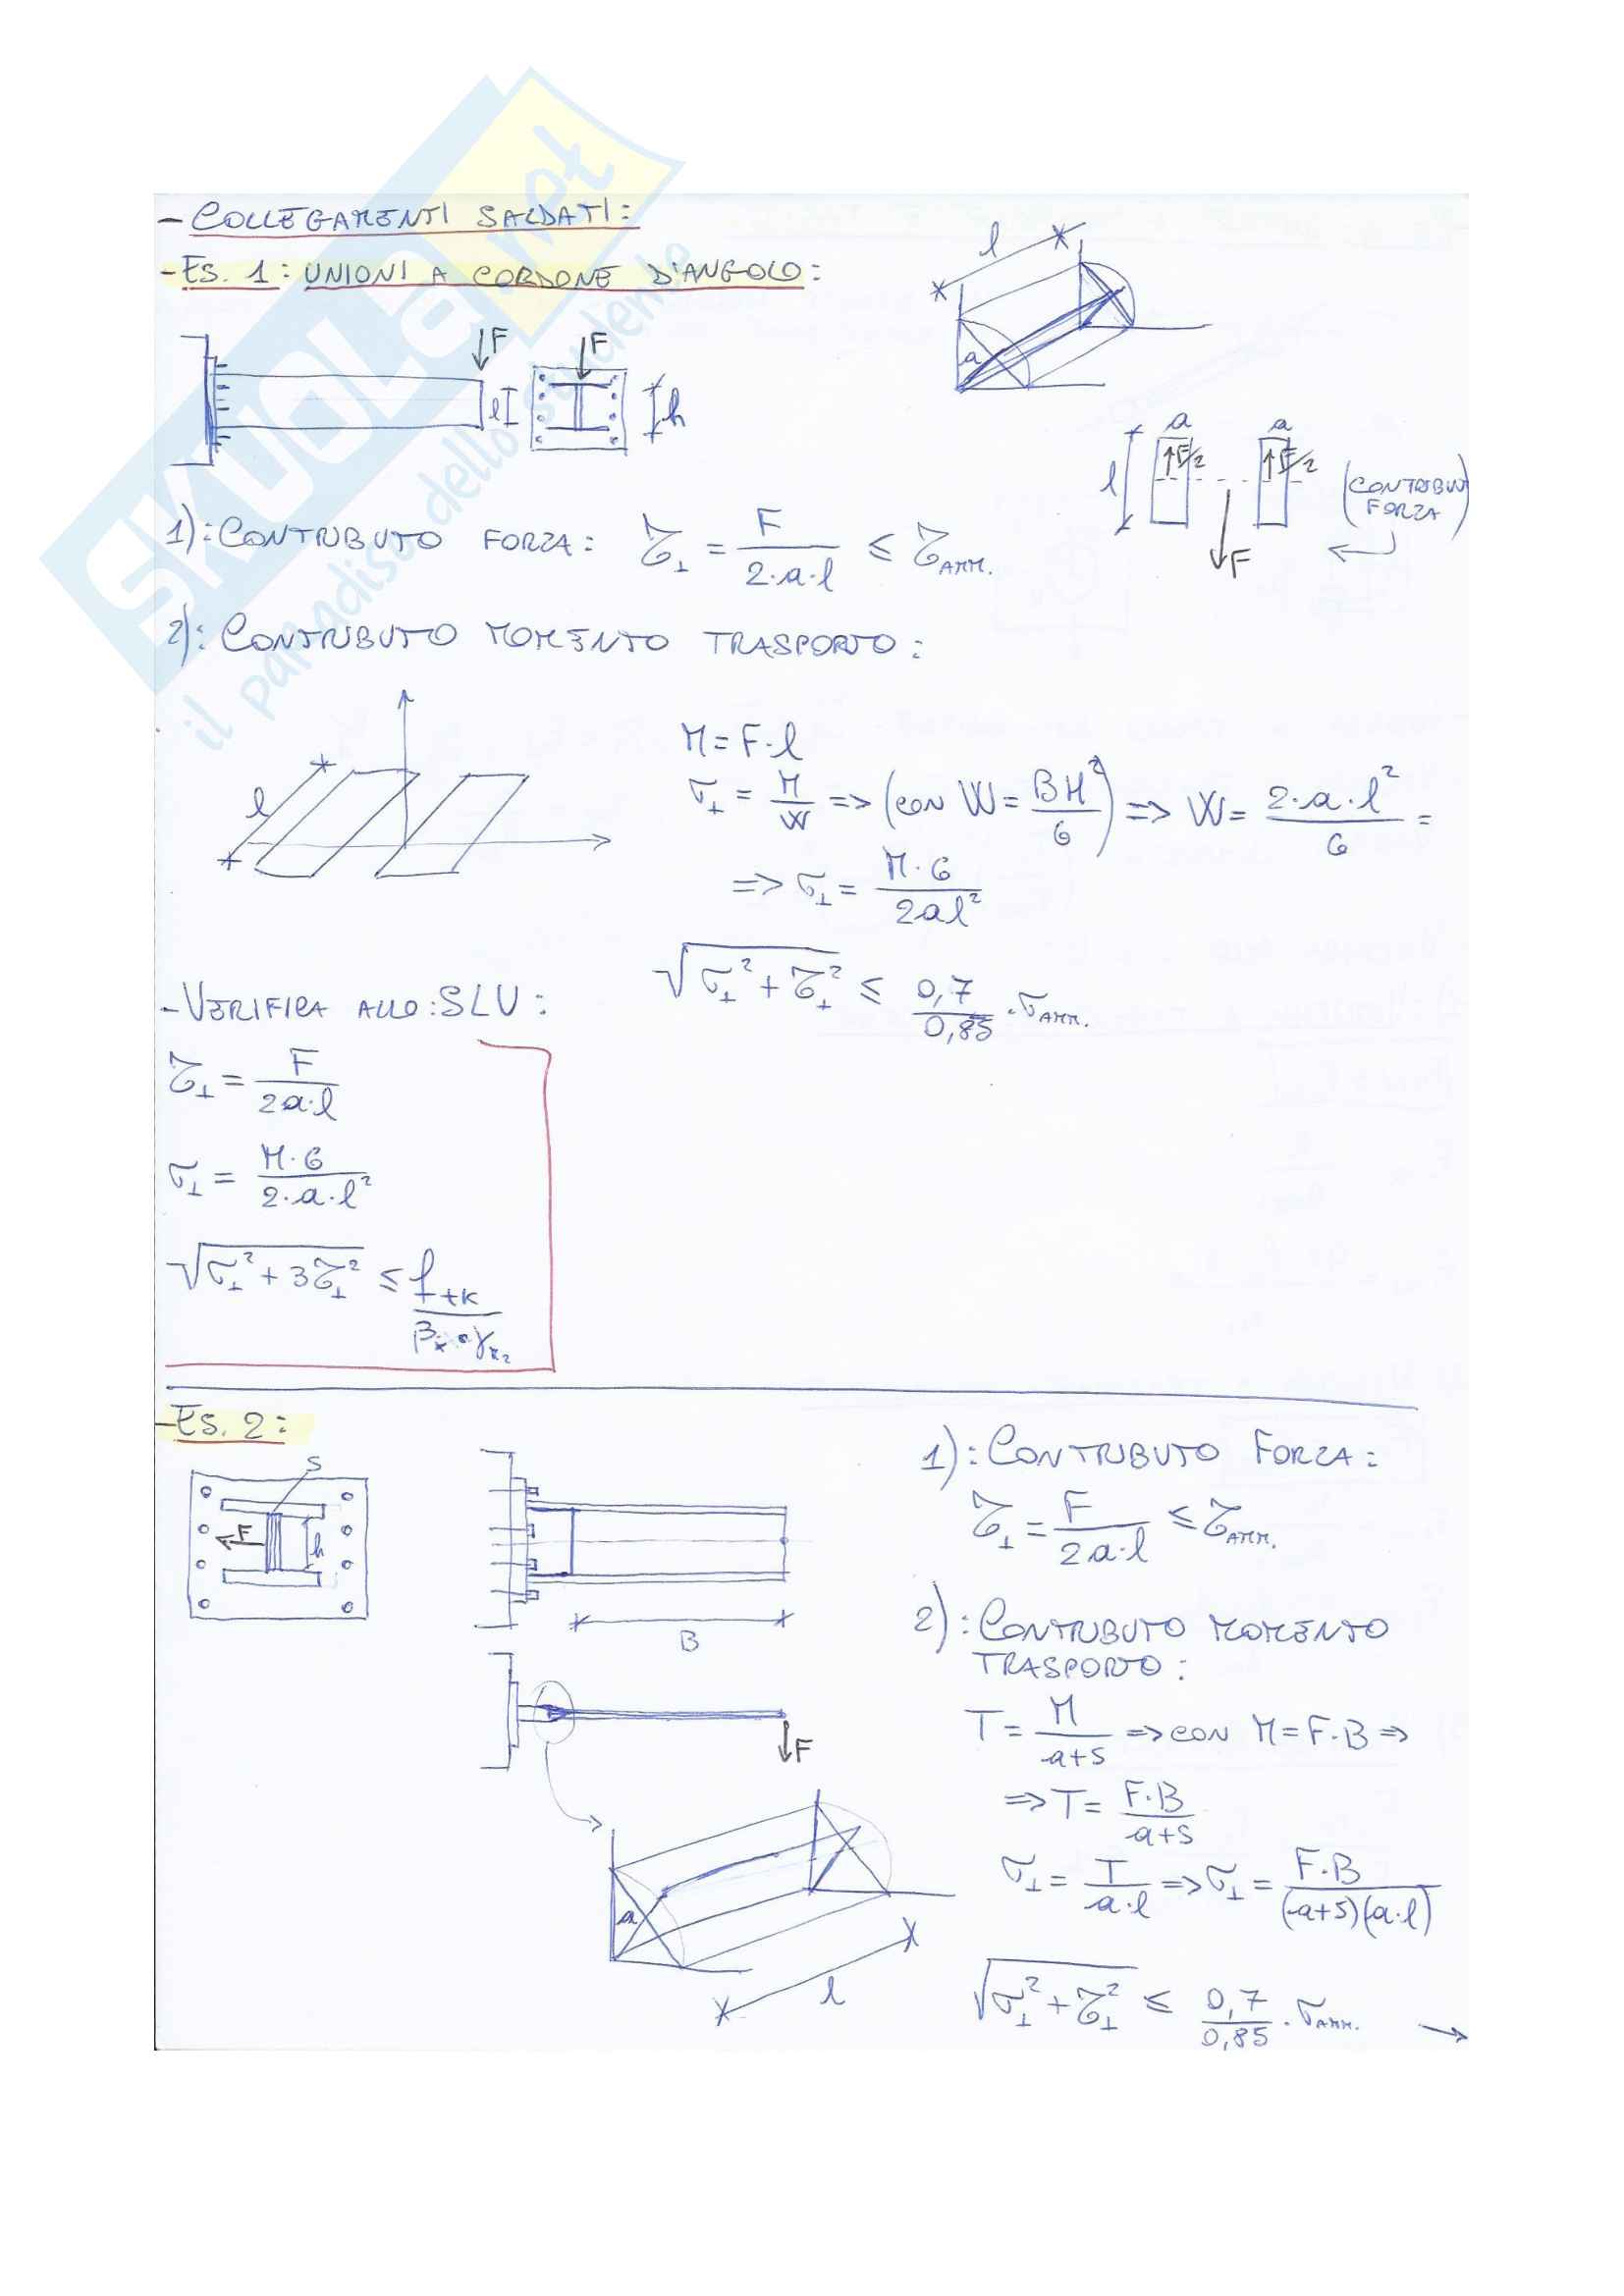 SKUOLA.net
il paradiso dello studente
- COLLEGAMENTI SALDATI:
- ES. 1: UNIONI A CORDONE D'ANGOLO:
l
a
F
F
l
h
a a
l
F/2 F/2
F
(CONTRIBUTO FORZA)
1): CONTRIBUTO FORZA: τ⊥ = F / (2·a·l) ≤ τAMM.
2): CONTRIBUTO MOMENTO TRASPORTO:
l
M = F·l
σ⊥ = M/W => (CON W = BH²/6) => W = 2·a·l²/6 =
=> σ⊥ = M·6 / 2al²
√(σ⊥² + τ⊥²) ≤ 0,7/0,85 · σAMM.
- VERIFICA ALLO: SLU:
τ⊥ = F / 2a·l
σ⊥ = M·6 / 2·a·l²
√(σ⊥² + 3τ⊥²) ≤ ftk / β · γ
- ES. 2:
S
F
h
B
F
a
l
1): CONTRIBUTO FORZA:
τ⊥ = F / 2a·l ≤ τAMM.
2): CONTRIBUTO MOMENTO
TRASPORTO:
T = M / a+s => CON M = F·B =>
=> T = F·B / a+s
σ⊥ = T / a·l => σ⊥ = F·B / (a+s)(a·l)
√(σ⊥² + τ⊥²) ≤ 0,7/0,85 · σAMM. →